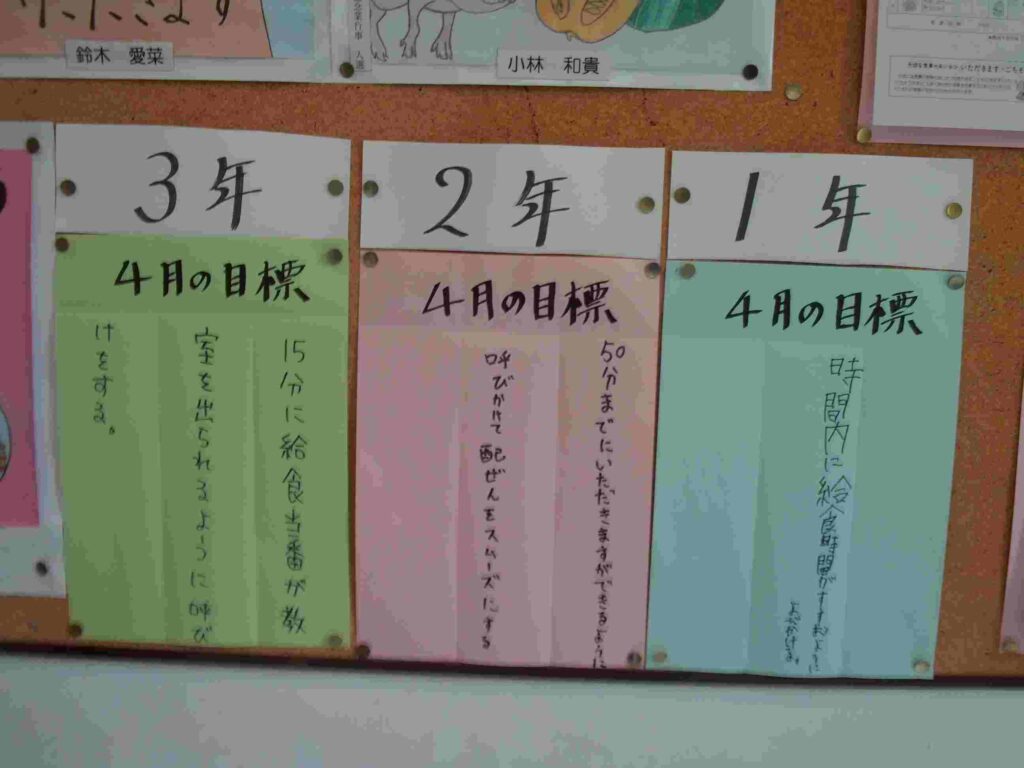 いただきます
鈴木 愛菜
小林 和貴
3年
4月の目標
15分に給食当番が教
室を出られるように呼び
けをする。
2年
4月の目標
50分までにいただきますができるように
呼びかけて配ぜんをスムーズにする
1年
4月の目標
時間内に給食時間がすすむように
よびかける。